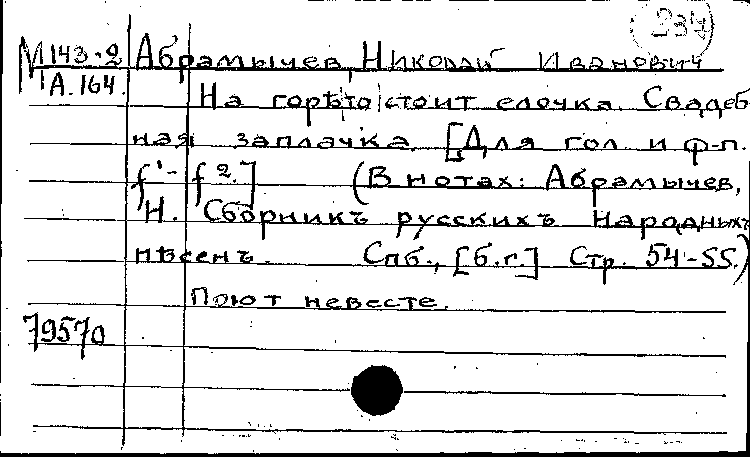 234
М143-2 Абрамычев, Николай Иванович
А.164. На горѣ-то стоит елочка. Свадеб
ная заплачка. [Для гол. и ф-п.
f¹- f².] (В нотах: Абрамычев,
Н. Сборникъ русскихъ народныхъ
пѣсенъ. Спб., [б.г.] Стр. 54-55.)
Поют невесте.
79570